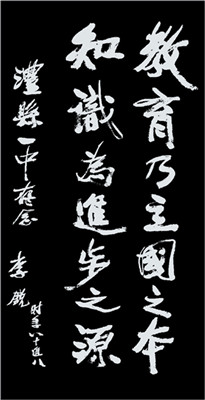 教育乃立國之本
知識為進步之源
澧縣一中存念
李銳
时年八十进八